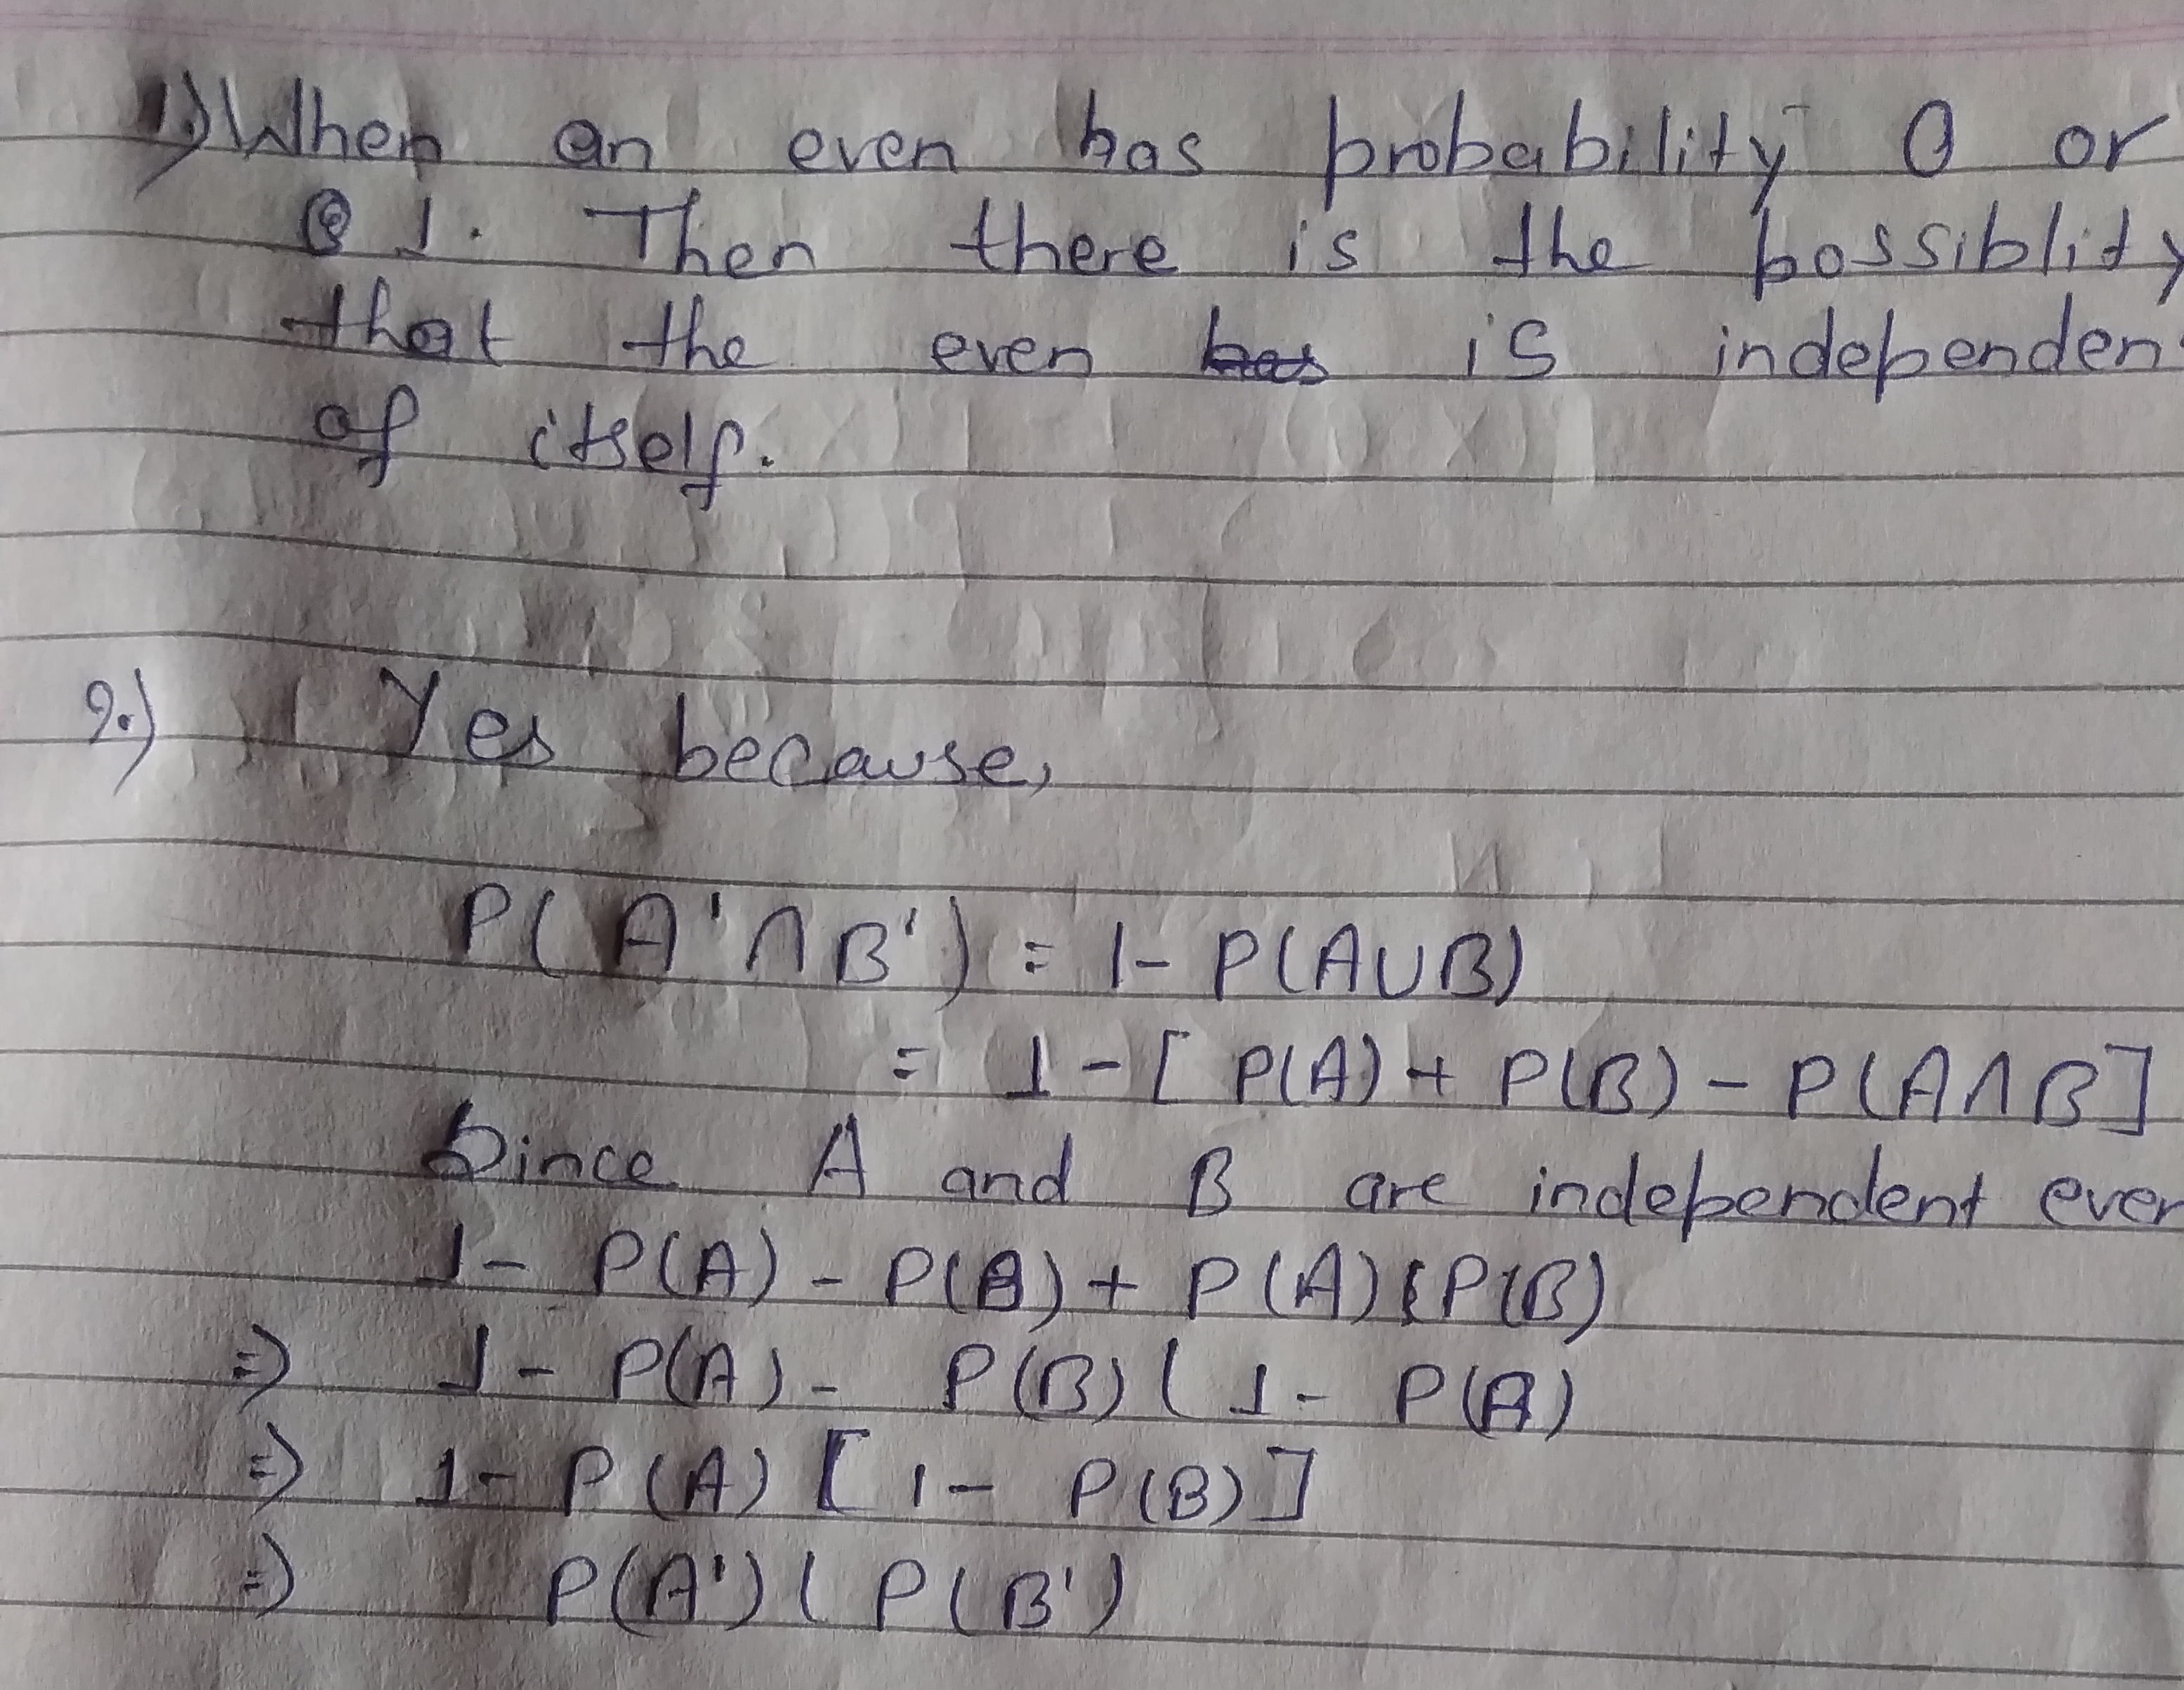 1.) When an even has probability 0 or
1. Then there is the possiblity
that the even has is independen
of itself.
2.) Yes because,
P(A'∩B') = 1- P(A∪B)
= 1-[P(A) + P(B) - P(A∩B]
Since A and B are independent even
1- P(A) - P(B) + P(A)(P(B)
=) 1- P(A) - P(B) ( 1- P(A)
=) 1- P(A) [ 1- P(B)]
=) P(A') ( P(B')